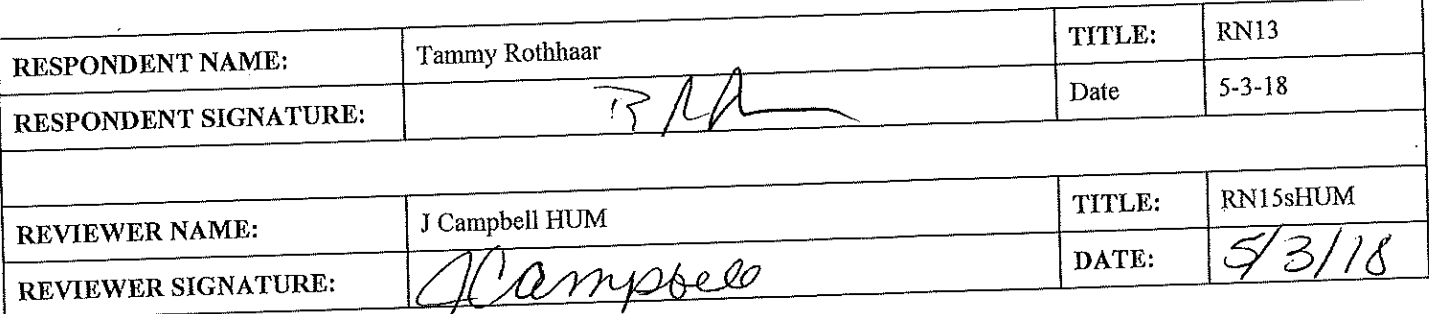 RESPONDENT NAME: Tammy Rothhaar TITLE: RN13
RESPONDENT SIGNATURE: Date 5-3-18
REVIEWER NAME: J Campbell HUM TITLE: RN15sHUM
REVIEWER SIGNATURE: JCampbell DATE: 5/3/18